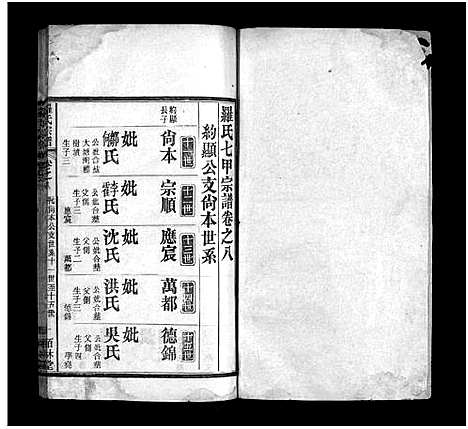 羅氏七甲宗譜卷之八
約顯公支尚本世系
十一世
約顯長子
尚本
妣
氏
公妣合葬
生子三
十二世
宗順
妣
氏
公妣合葬
父側
生子三
應宸
十三世
應宸
妣沈氏
公妣合葬
父側
生子二
萬都
十四世
萬都
妣洪氏
公妣合葬
父側
生子三
德錦
十五世
德錦
妣吳氏
公妣合葬
父側
生子四
羅氏宗譜
卷之八
尚本公支世系十一世至十五世